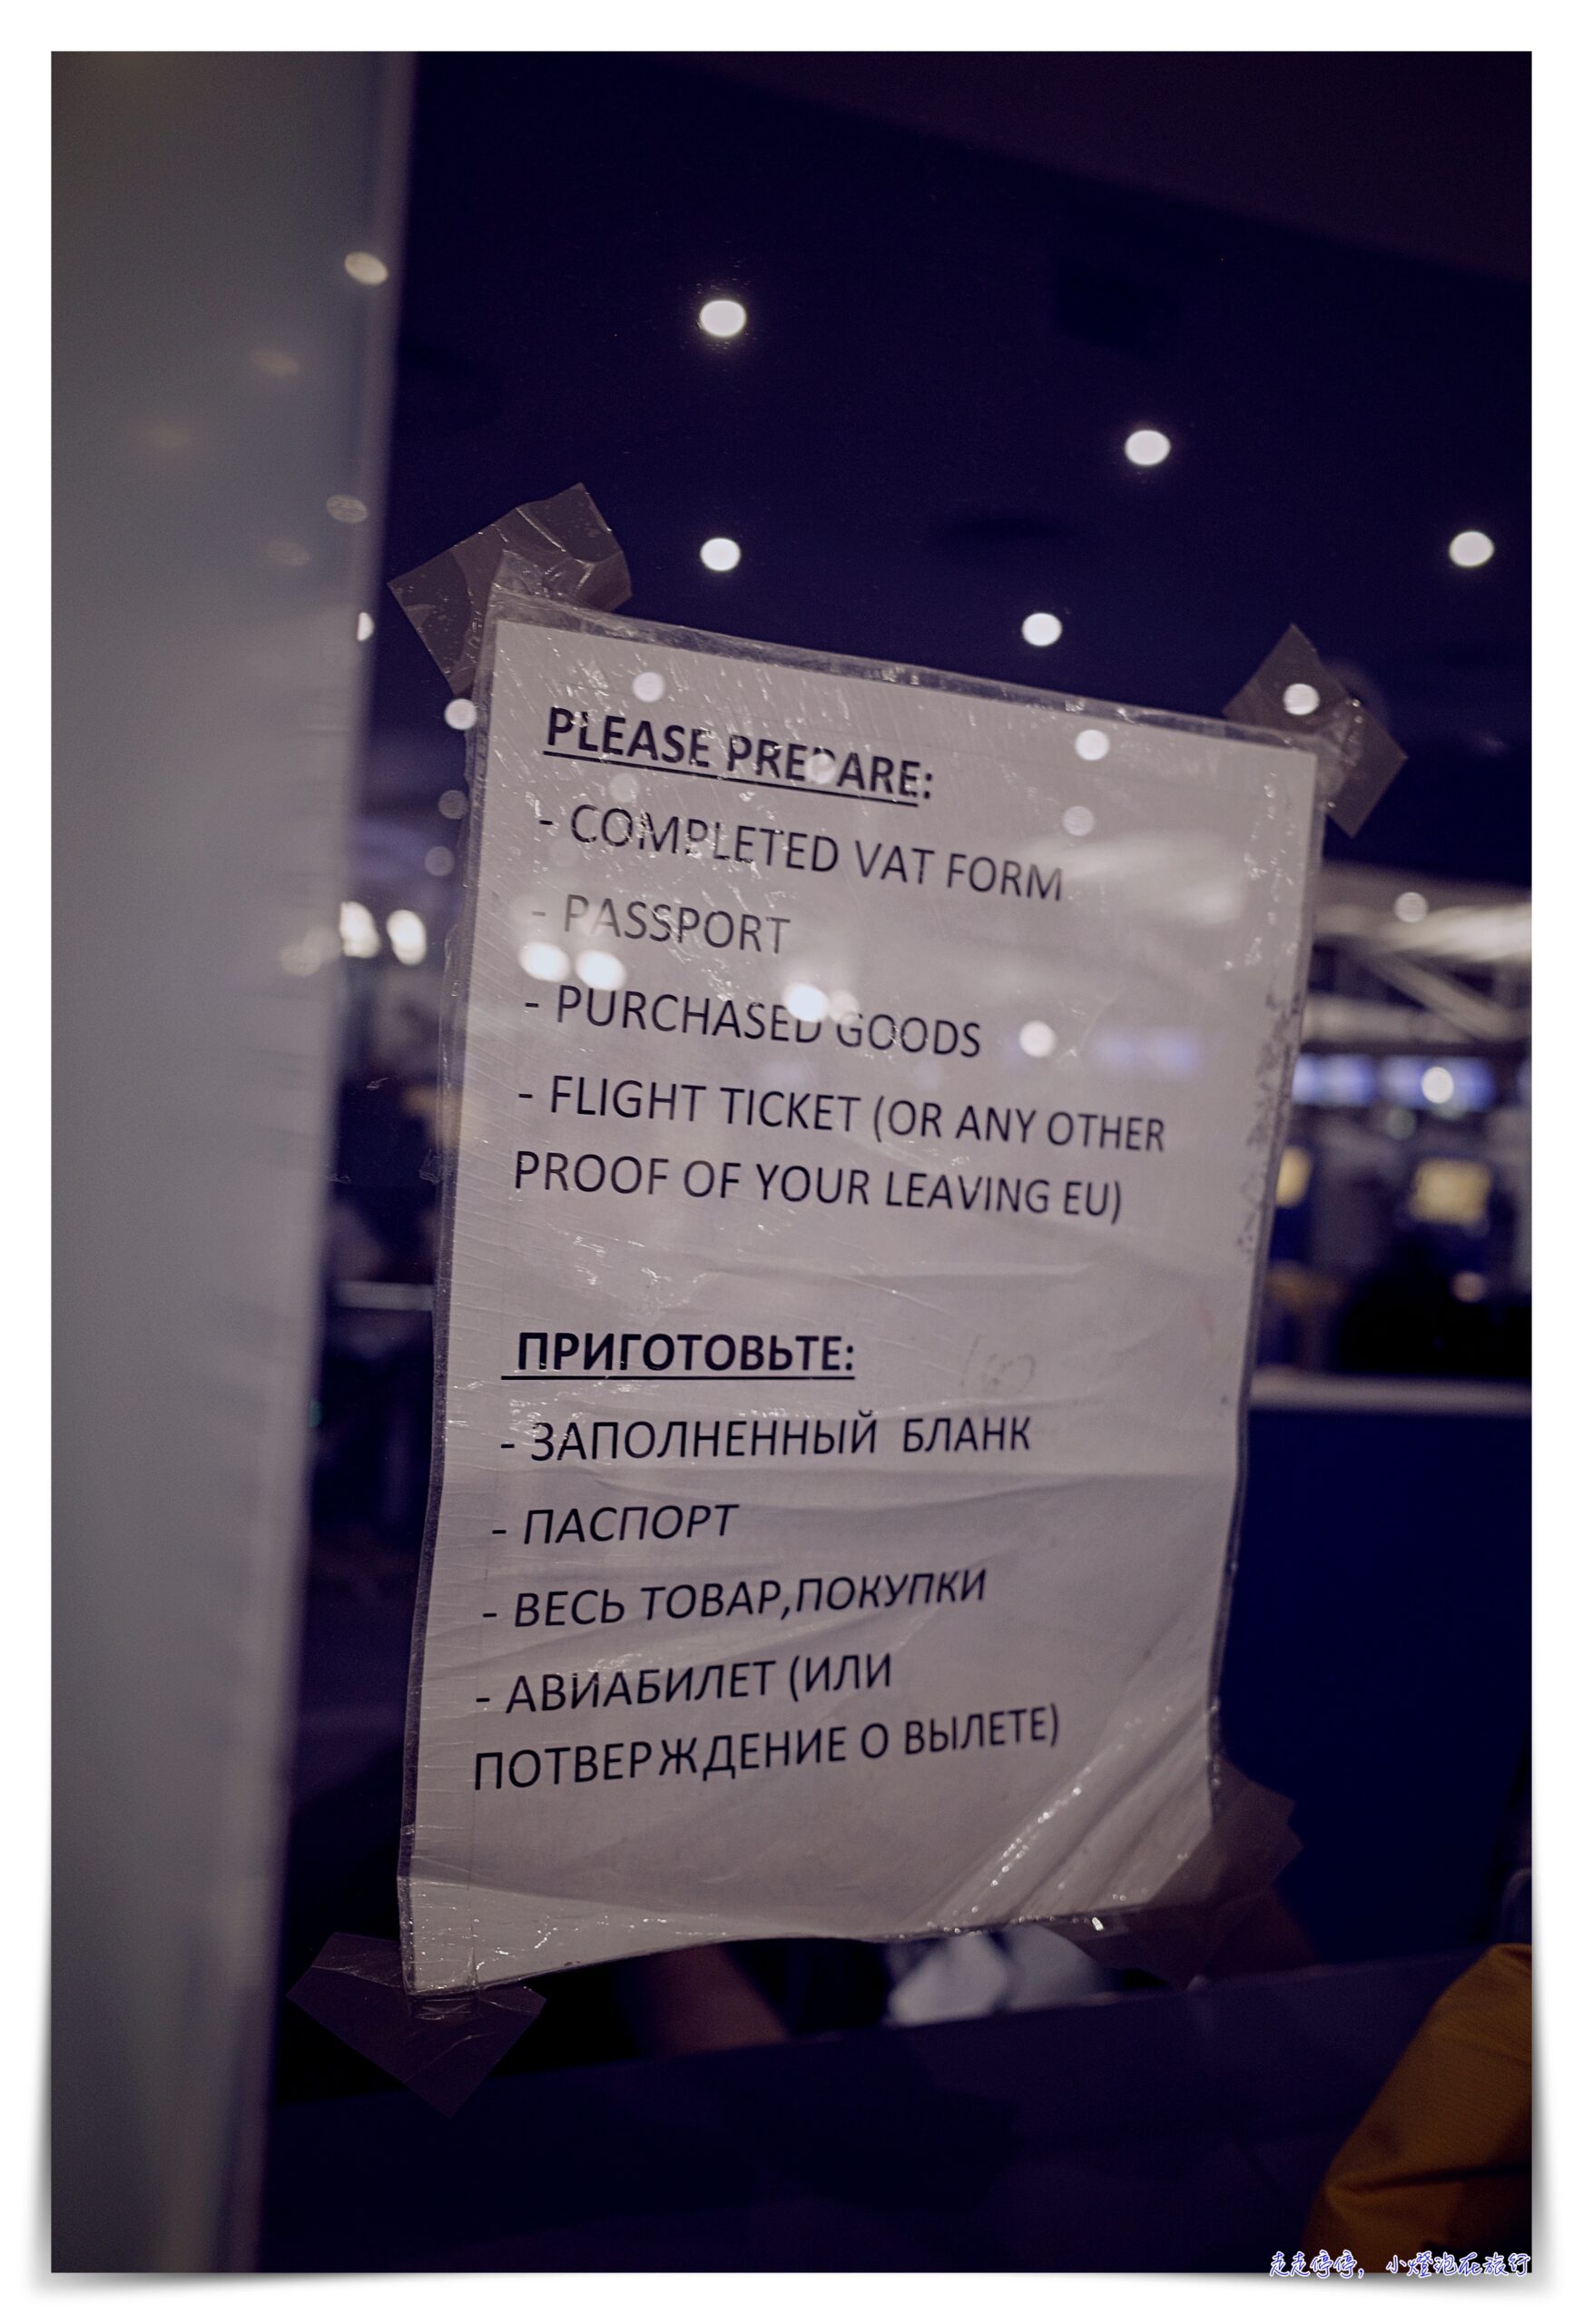 PLEASE PREPARE:
- COMPLETED VAT FORM
- PASSPORT
- PURCHASED GOODS
- FLIGHT TICKET (OR ANY OTHER
PROOF OF YOUR LEAVING EU)
ПРИГОТОВЬТЕ:
- ЗАПОЛНЕННЫЙ БЛАНК
- ПАСПОРТ
- ВЕСЬ ТОВАР,ПОКУПКИ
- АВИАБИЛЕТ (ИЛИ
ПОТВЕРЖДЕНИЕ О ВЫЛЕТЕ)
走走停停, 小燈泡在旅行